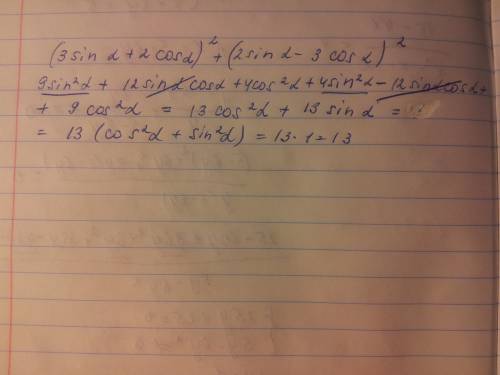 (3 sin α + 2 cos α)² + (2 sin α - 3 cos α)²
9 sin²α + 12 sin α cos α + 4 cos²α + 4 sin²α - 12 sin α cos α +
+ 9 cos²α = 13 cos²α + 13 sin α =
= 13 (cos²α + sin²α) = 13 · 1 = 13